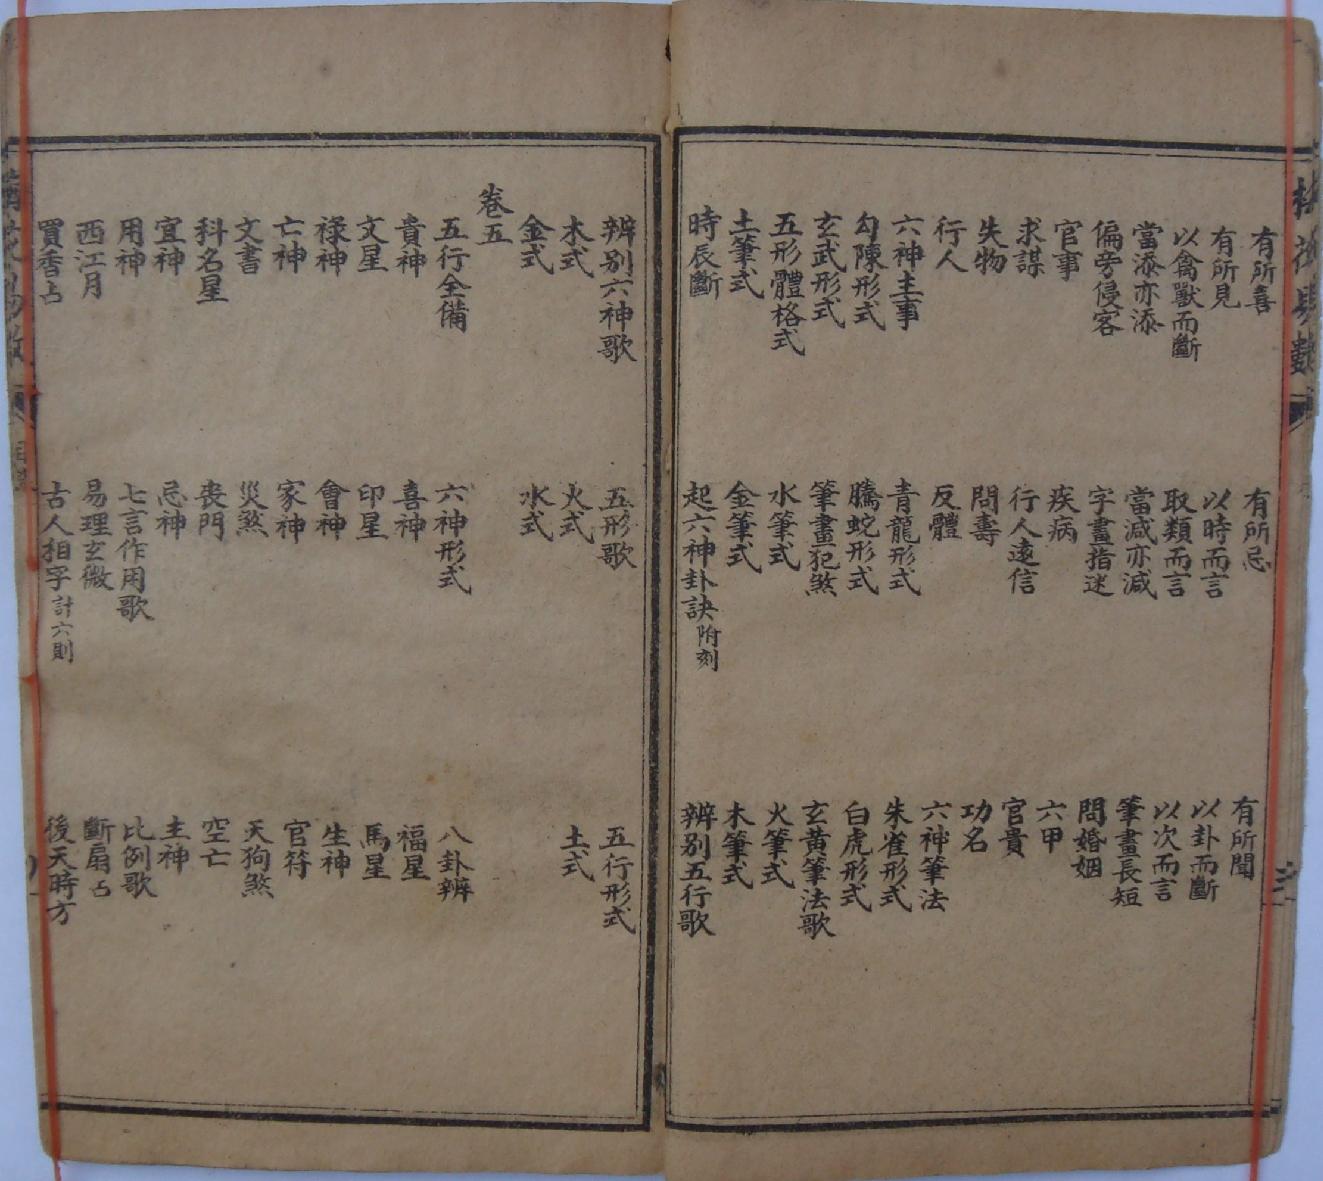 有所喜 有所忌 有所聞
有所見 以時而言 以卦而斷
以禽獸而斷 取類而言 以次而言
當添亦添 當減亦減 筆畫長短
偏旁侵客 字畫指迷 問婚姻
官事 疾病 六甲
求謀 行人遠信 官貴
失物 問壽 功名
行人 反體 六神筆法
六神主事 青龍形式 朱雀形式
勾陳形式 騰蛇形式 白虎形式
玄武形式 筆畫犯煞 玄黃筆法歌
五形體格式 水筆式 火筆式
土筆式 金筆式 木筆式
時辰斷 起六神卦訣附刻 辨别五行歌
辨别六神歌 五形歌 五行形式
木式 火式 土式
金式 水式
卷五
五行全備 六神形式 八卦辨
貴神 喜神 福星
文星 印星 馬星
祿神 會神 生神
亡神 家神 官符
文書 災煞 天狗煞
科名星 喪門 空亡
宜神 忌神 主神
用神 七言作用歌 比例歌
西江月 易理玄微 斷扇占
買香占 古人相字計六則 後天時方